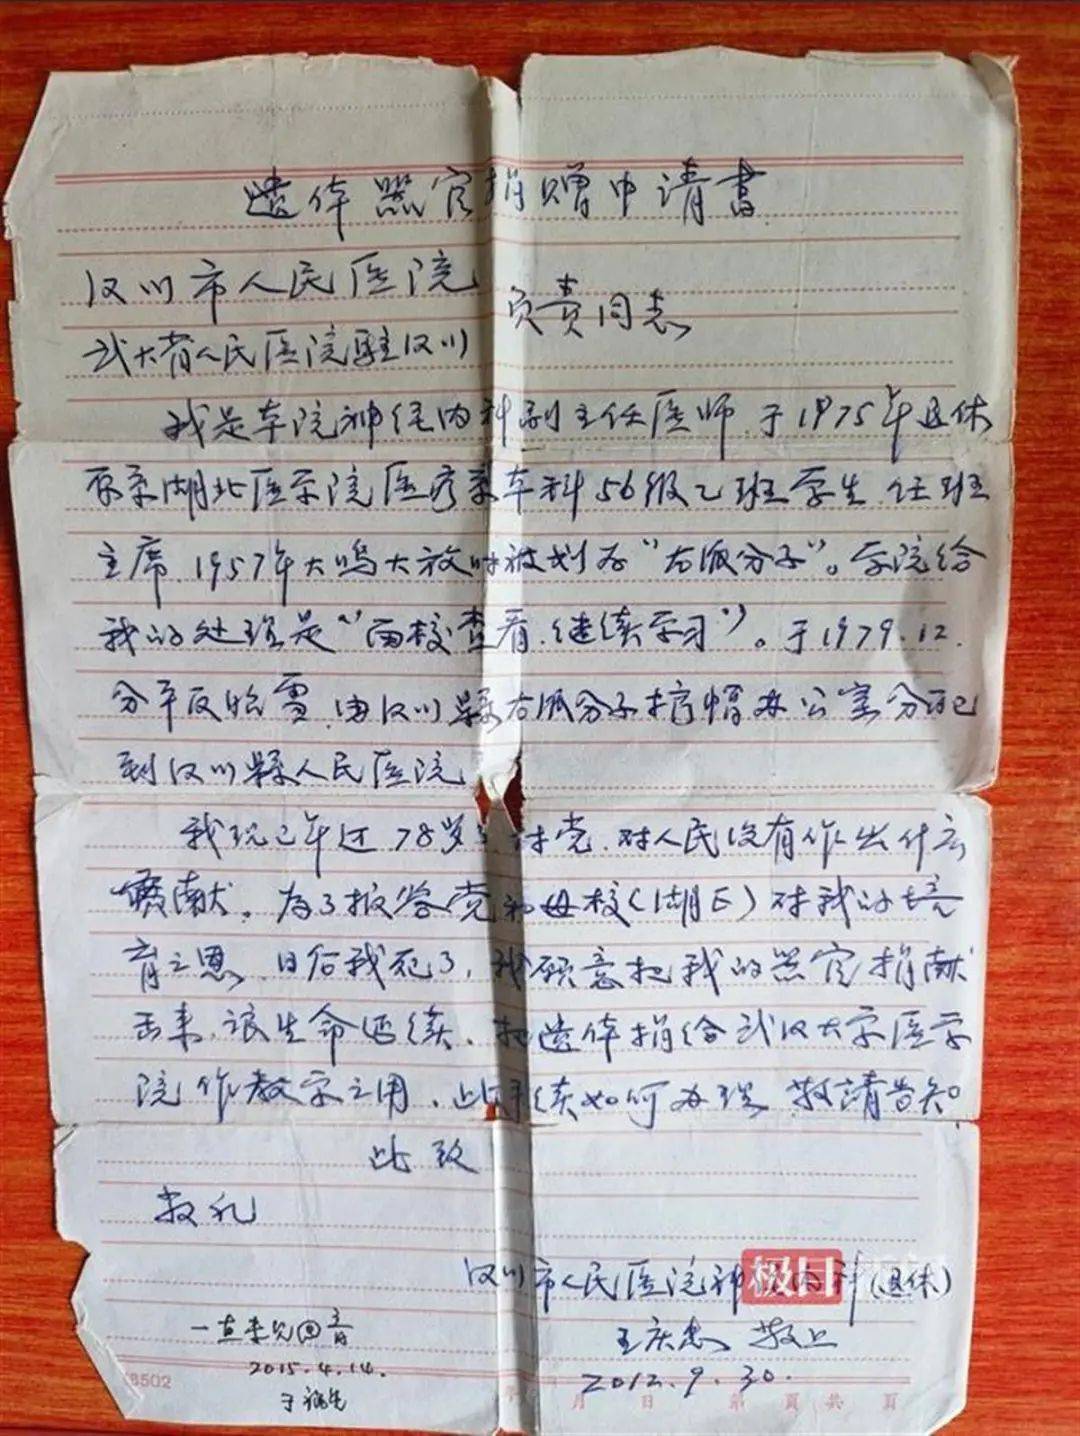 遗体器官捐赠申请书
汉川市人民医院
负责同志
武大省人民医院驻汉川
我是本院神经内科副主任医师 于1975年退休
原系湖北医学院医疗系本科56级乙班学生 任班
主席、1957年大鸣大放时被划为“右派分子”。学院给
我的处理是“留校查看、继续学习”。于1979.12.
分平反昭雪、由汉川县右派分子摘帽办公室分配
到汉川县人民医院
我现已年过78岁了、对党、对人民没有作出什么
贡献。为了报答党和母校(湖医)对我的培
育之恩、日后我死了,我愿意把我的器官捐献
出来、让生命延续、把遗体捐给武汉大学医学
院作教学之用、此手续如何办理 敬请告知
此致
敬礼
汉川市人民医院神经内科(退休)
王庆惠 敬上
2012.9.30.
一直未见回音
2015.4.14.
于福先
8502
年 月 日 第 页共 页
极目